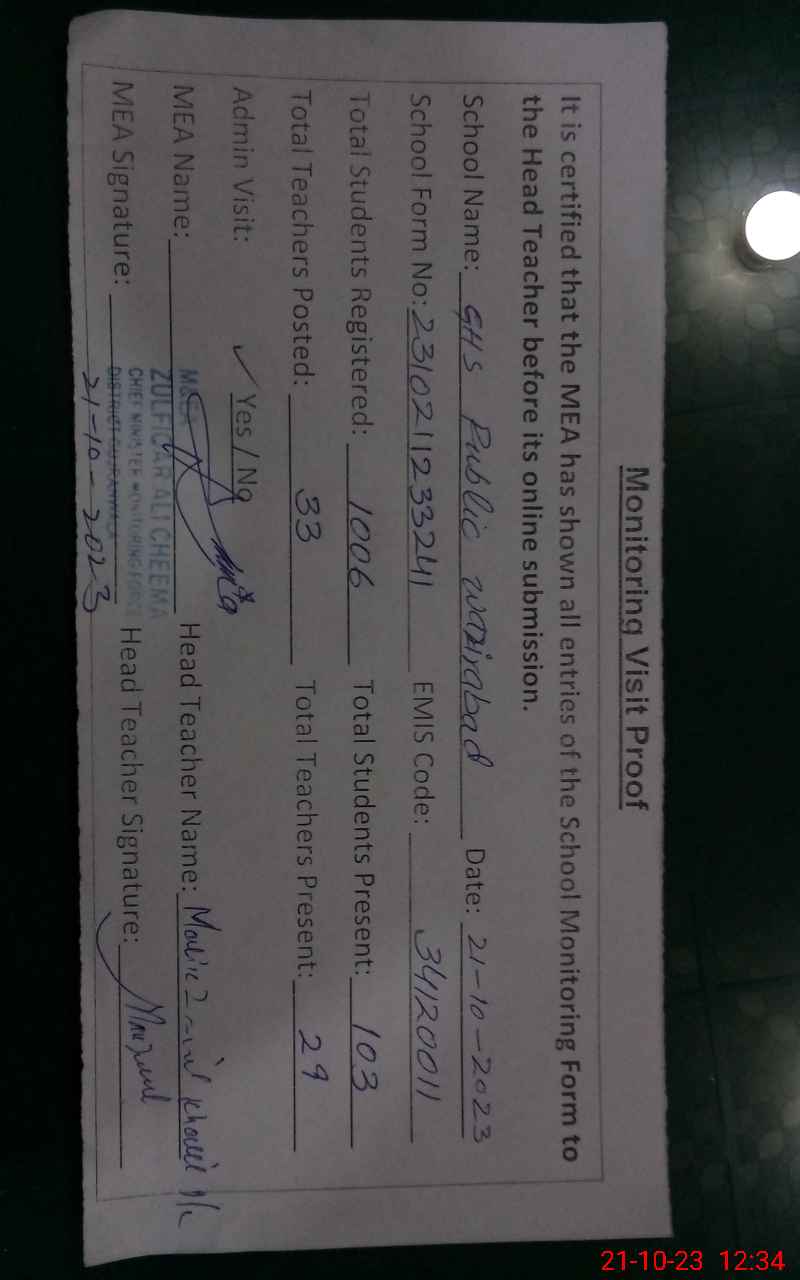 Monitoring Visit Proof
It is certified that the MEA has shown all entries of the School Monitoring Form to
the Head Teacher before its online submission.
School Name: GHS Public wazirabad Date: 21-10-2023
School Form No: 2310211233241 EMIS Code: 34120011
Total Students Registered: 1006 Total Students Present: 103
Total Teachers Posted: 33 Total Teachers Present: 29
Admin Visit: ✓ Yes / No
MEA Name: Head Teacher Name: Malik
MEA Signature: Head Teacher Signature:
M&EA
ZULFIQAR ALI CHEEMA
CHIEF MINISTER MONITORING FORCE
DISTRICT GUJRANWALA
21-10-2023
21-10-23 12:34